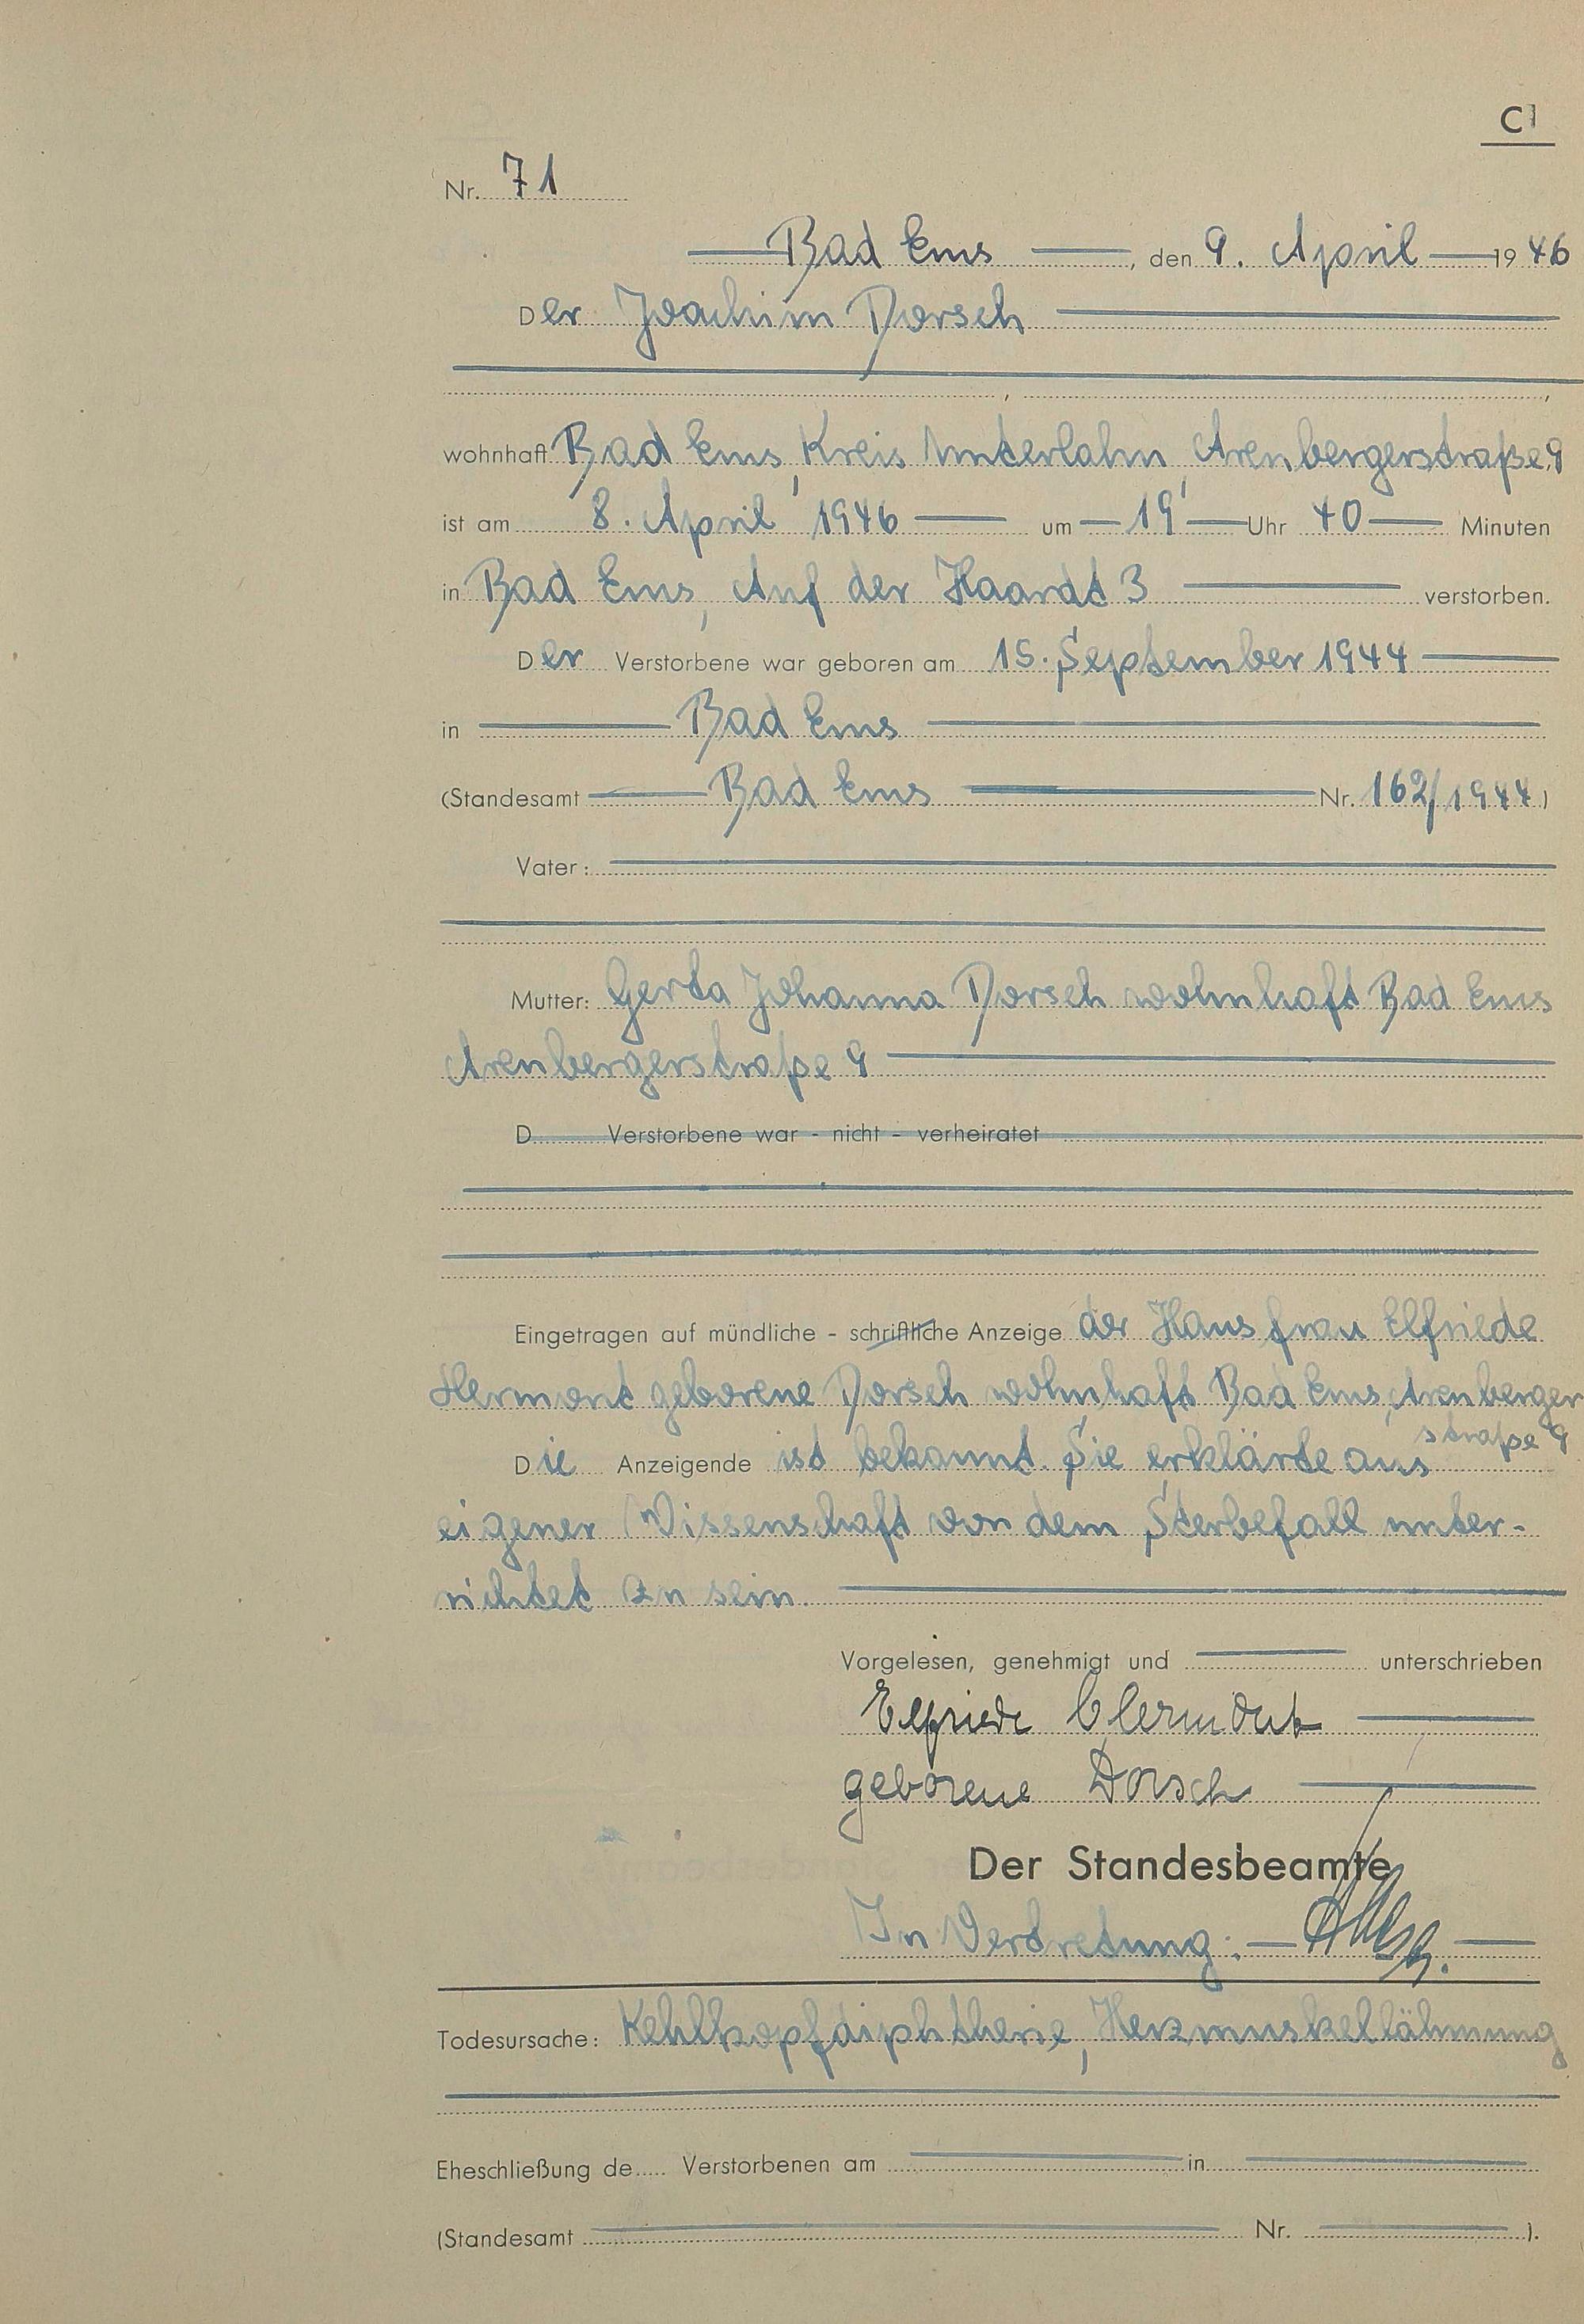 C
Nr. 71
Bad Ems, den 9. April 1946
Der Joachim Dorsch
wohnhaft Bad Ems, Kreis Unterlahn, Arenbergerstraße 9
ist am 8. April 1946 um 19 Uhr 40 Minuten
in Bad Ems, Auf der Haardt 3 verstorben.
Der Verstorbene war geboren am 15. September 1944
in Bad Ems
(Standesamt Bad Ems Nr. 162/1944)
Vater:
Mutter: Gerta Johanna Dorsch wohnhaft Bad Ems
Arenbergerstraße 9
D Verstorbene war - nicht - verheiratet
Eingetragen auf mündliche - schriftliche Anzeige der Hausfrau Elfriede
Clermont geborene Dorsch wohnhaft Bad Ems, Arenberger
straße 9
Die Anzeigende ist bekannt. Sie erklärte aus
eigener Wissenschaft von dem Sterbefall unter-
richtet zu sein.
Vorgelesen, genehmigt und unterschrieben
Elfriede Clermont
geborene Dorsch
Der Standesbeamte
In Vertretung:
Todesursache: Kehlkopfdiphtherie, Herzmuskellähmung
Eheschließung de Verstorbenen am in
(Standesamt Nr. ).